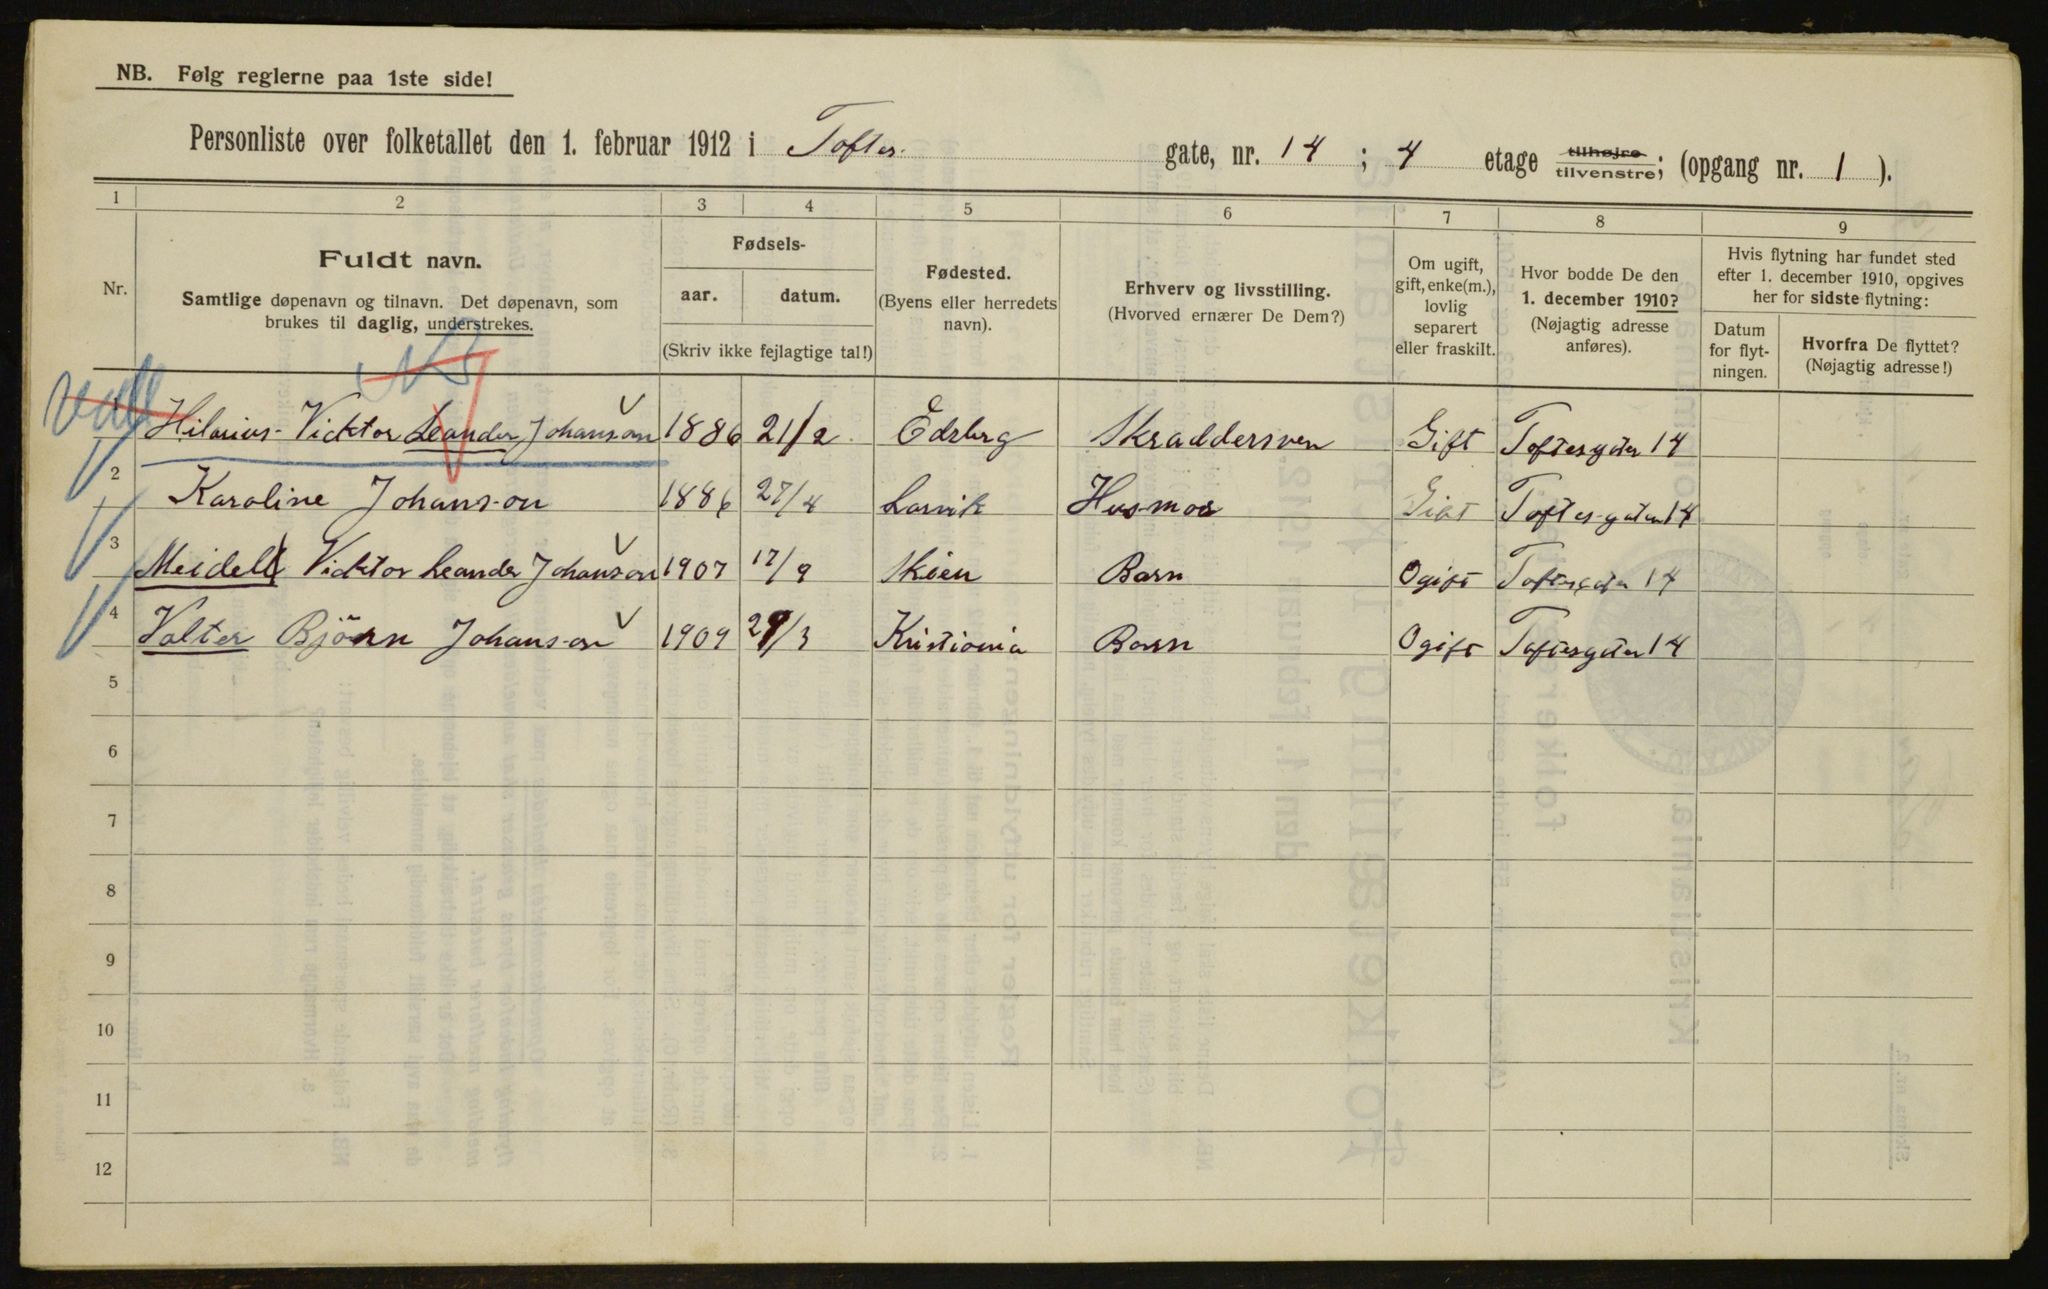 NB. Følg reglerne paa 1ste side!
Personliste over folketallet den 1. februar 1912 i Toftes gate, nr. 14 ; 4 etage tilhøjre tilvenstre; (opgang nr. 1 ).
1 2 3 4 5 6 7 8 9
Nr.
Fuldt navn.
Samtlige døpenavn og tilnavn. Det døpenavn, som
brukes til daglig, understrekes.
Fødsels-
aar. datum.
(Skriv ikke fejlagtige tal!)
Fødested.
(Byens eller herredets
navn).
Erhverv og livsstilling.
(Hvorved ernærer De Dem?)
Om ugift,
gift, enke(m.),
lovlig
separert
eller fraskilt.
Hvor bodde De den
1. december 1910?
(Nøjagtig adresse
anføres).
Hvis flytning har fundet sted
efter 1. december 1910, opgives
her for sidste flytning:
Datum
for flyt-
ningen.
Hvorfra De flyttet?
(Nøjagtig adresse!)
1 Hilarius- Vicktor Leander Johanson 1886 21/2 Edsberg Skraddersven Gift Toftesgaten 14
2 Karoline Johanson 1886 27/4 Larvik Husmor Gift Toftes-gaten 14
3 Meidell Vicktor Leander Johanson 1907 17/9 Skien Barn Ogift Toftesgaten 14
4 Valter Bjørn Johanson 1909 29/3 Kristiania Barn Ogift Toftesgaten 14
5
6
7
8
9
10
11
12